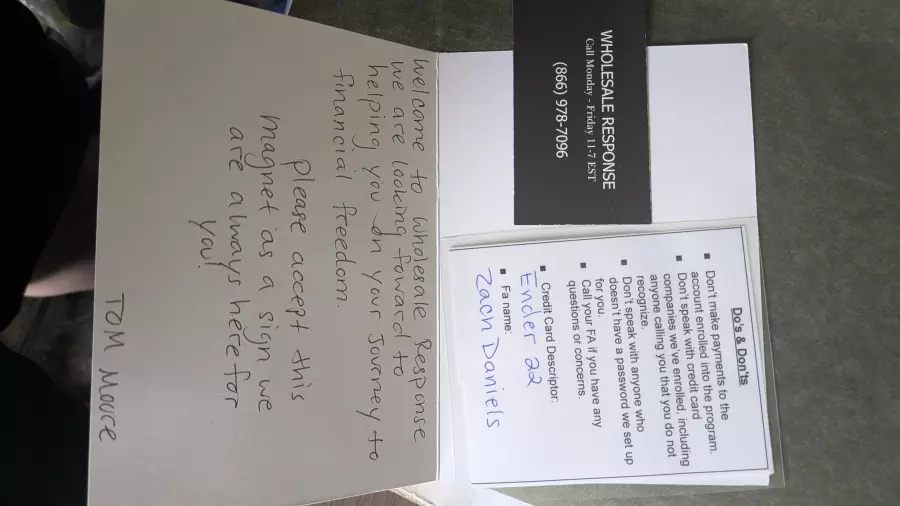 WHOLESALE RESPONSE
Call Monday - Friday 11-7 EST
(866) 978-7096
Do's & Don'ts
▪ Don't make payments to the
account enrolled into the program.
▪ Don't speak with credit card
companies we've enrolled, including
anyone calling you that you do not
recognize.
▪ Don't speak with anyone who
doesn't have a password we set up
for you.
▪ Call your FA if you have any
questions or concerns.
▪ Credit Card Descriptor:
Ender 22
▪ Fa name:
Zach Daniels
Welcome to Wholesale Response
we are looking foward to
helping you on your Journey to
financial freedom.
please accept this
magnet as a sign we
are always here for
you!
TOM Moore